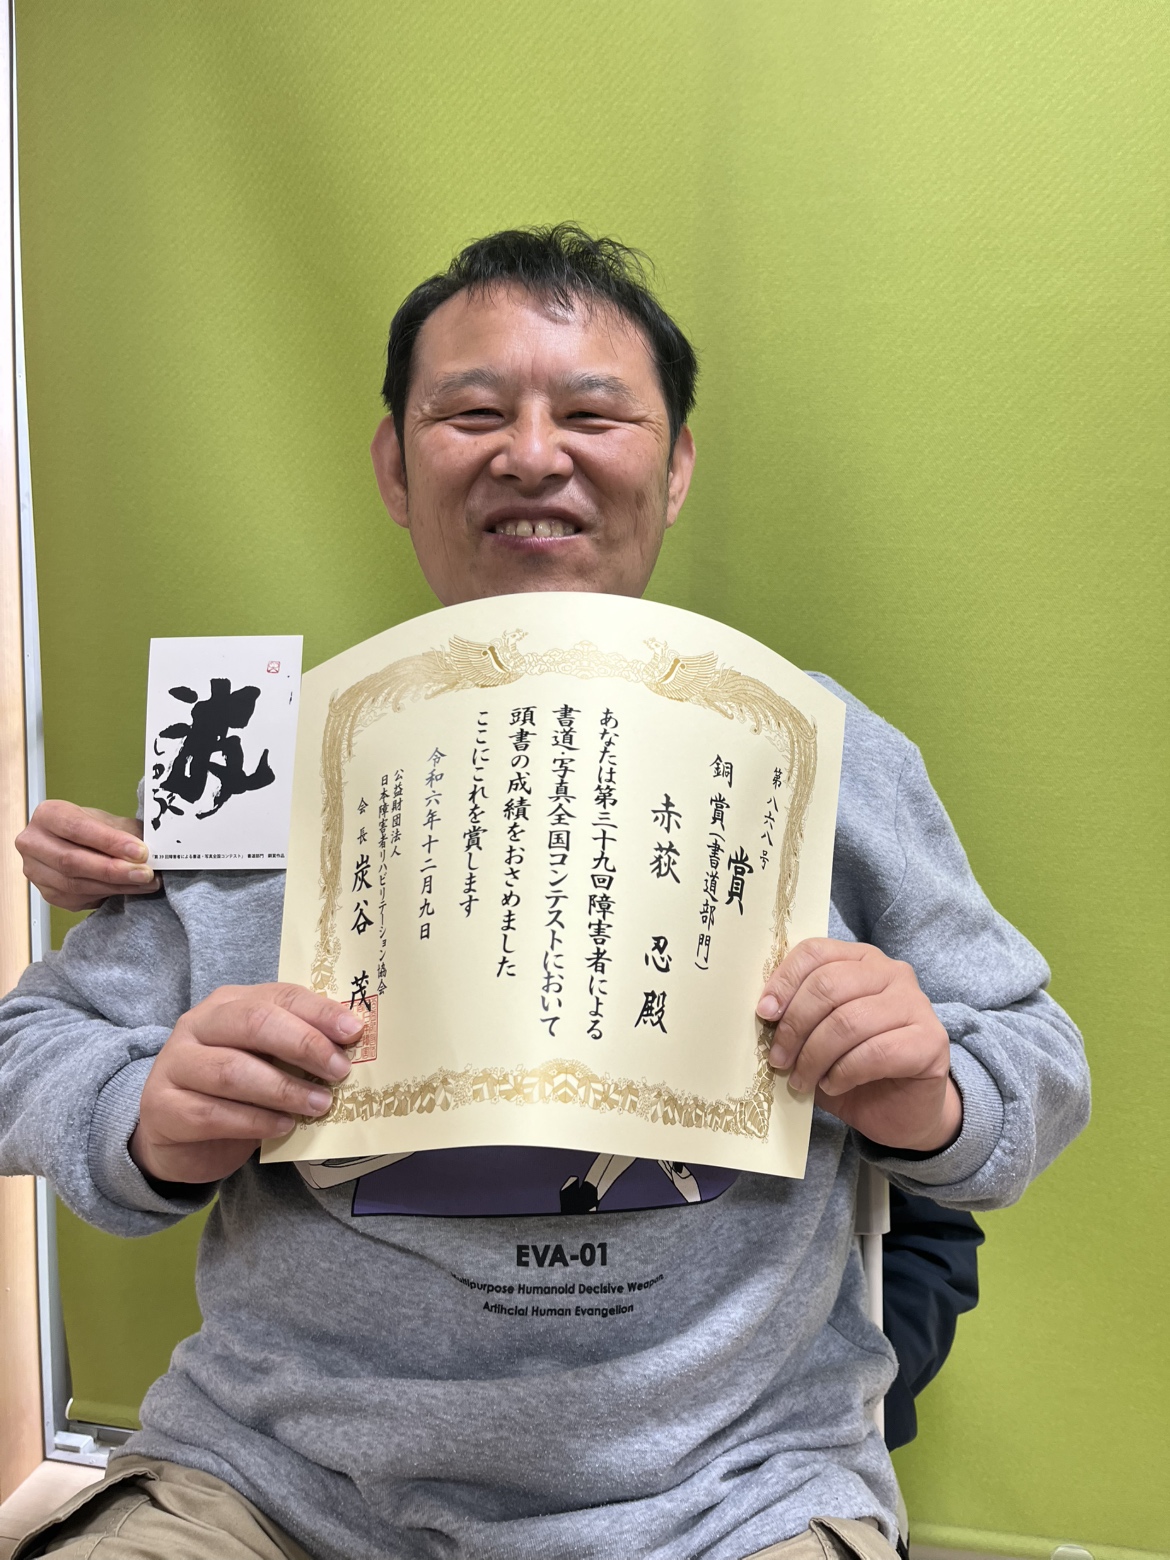 第八六八号
賞
銅賞(書道部門)
赤荻 忍 殿
あなたは第三十九回障害者による
書道・写真全国コンテストにおいて
頭書の成績をおさめました
ここにこれを賞します
令和六年十二月九日
公益財団法人
日本障害者リハビリテーション協会
会長 炭谷 茂
波
しのぶ
「第39回障害者による書道・写真全国コンテスト」 書道部門 銅賞作品
EVA-01
Multipurpose Humanoid Decisive Weapon
Artificial Human Evangelion